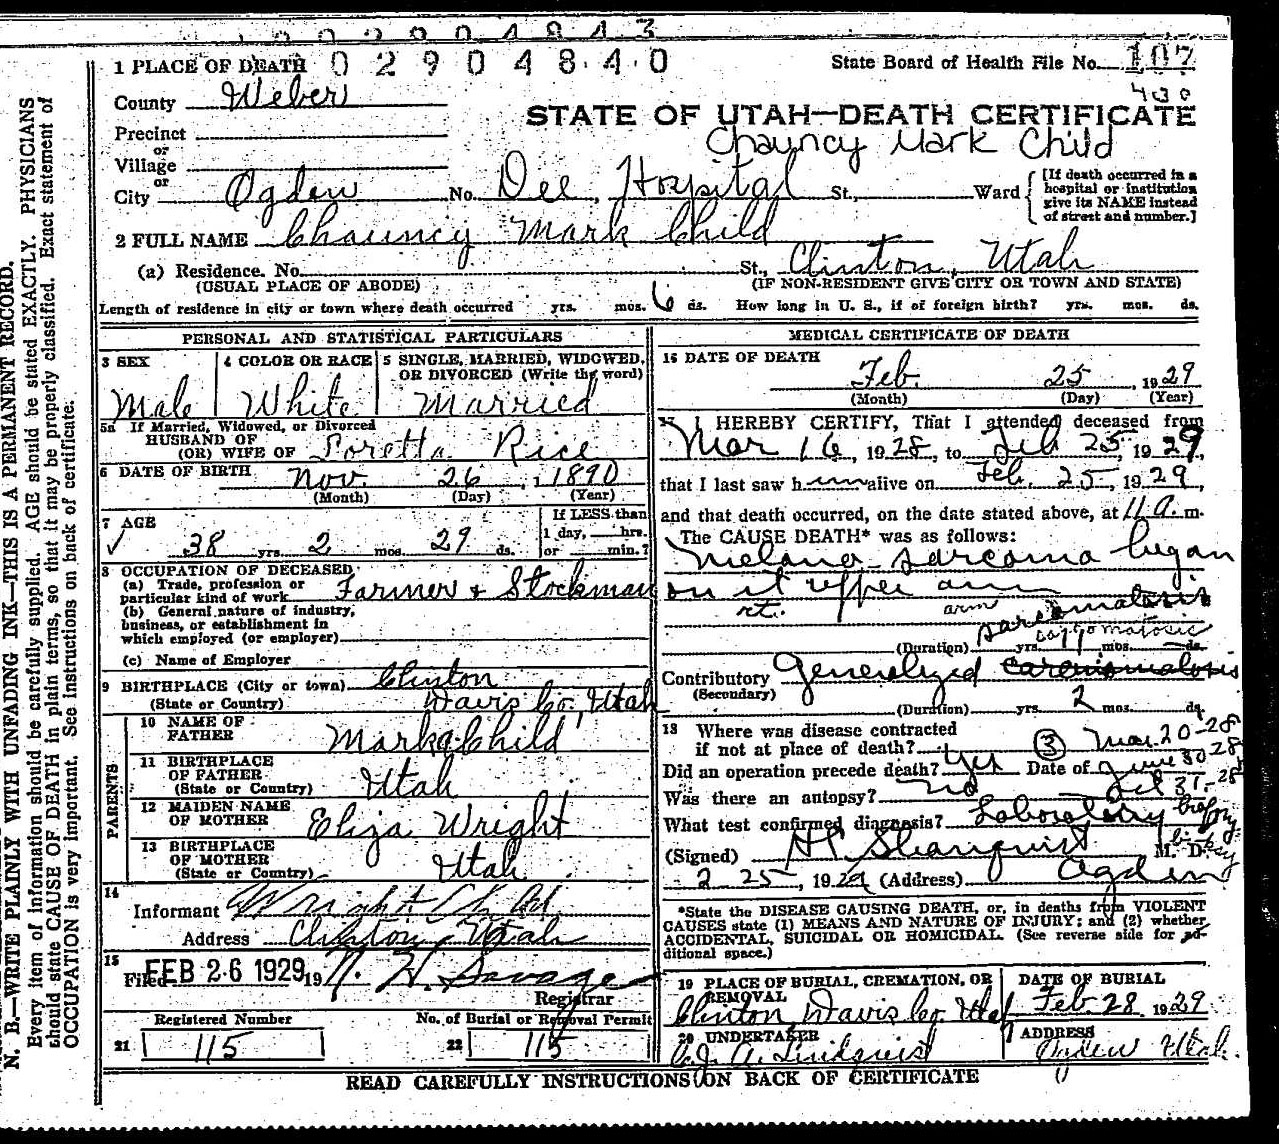 0 2 9 0 4 8 4 3
1 PLACE OF DEATH 0 2 9 0 4 8 4 0
State Board of Health File No. 107
430
County Weber
STATE OF UTAH—DEATH CERTIFICATE
Chauncy Mark Child
Precinct
or
Village
or
City Ogden No. Dee Hospital St., Ward
[If death occurred in a hospital or institution give its NAME instead of street and number.]
2 FULL NAME Chauncy Mark Child
(a) Residence. No. St., Clinton, Utah
(USUAL PLACE OF ABODE) (IF NON-RESIDENT GIVE CITY OR TOWN AND STATE)
Length of residence in city or town where death occurred yrs. mos. 6 ds. How long in U. S., if of foreign birth? yrs. mos. ds.
PERSONAL AND STATISTICAL PARTICULARS
3 SEX
Male
4 COLOR OR RACE
White
5 SINGLE, MARRIED, WIDOWED, OR DIVORCED (Write the word)
Married
5a If Married, Widowed, or Divorced
HUSBAND OF
(OR) WIFE OF Loretta Rice
6 DATE OF BIRTH Nov. 26, 1890
(Month) (Day) (Year)
7 AGE
38 yrs. 2 mos. 29 ds.
If LESS than
1 day, hrs.
or min.?
8 OCCUPATION OF DECEASED
(a) Trade, profession or particular kind of work Farmer + Stockman
(b) General nature of industry, business, or establishment in which employed (or employer)
(c) Name of Employer
9 BIRTHPLACE (City or town) Clinton
(State or Country) Davis Co., Utah
PARENTS
10 NAME OF FATHER Mark Child
11 BIRTHPLACE OF FATHER
(State or Country) Utah
12 MAIDEN NAME OF MOTHER Eliza Wright
13 BIRTHPLACE OF MOTHER
(State or Country) Utah
14
Informant Wright Child
Address Clinton, Utah
15
Filed FEB 26 1929 19 N. H. Savage
Registrar
Registered Number No. of Burial or Removal Permit
21 115 22 115
MEDICAL CERTIFICATE OF DEATH
16 DATE OF DEATH
Feb. 25, 1929
(Month) (Day) (Year)
17 I HEREBY CERTIFY, That I attended deceased from
Mar 16, 1928, to Feb 25, 1929,
that I last saw him alive on Feb. 25, 1929,
and that death occurred, on the date stated above, at 11 a. m.
The CAUSE DEATH* was as follows:
Melano-sarcoma began
on rt upper arm
rt. arm sarcomatosis
(Duration) yrs. mos. ds.
Contributory Generalized carcinomatosis
(Secondary)
(Duration) yrs. 2 mos. ds.
18 Where was disease contracted
if not at place of death?
Did an operation precede death? Yes Date of
③ Mar. 20-28
June 30 28
Was there an autopsy? no
What test confirmed diagnosis? Laboratory biopsy
(Signed) M. D.
2 25, 1929 (Address) Ogden
*State the DISEASE CAUSING DEATH, or, in deaths from VIOLENT CAUSES state (1) MEANS AND NATURE OF INJURY; and (2) whether ACCIDENTAL, SUICIDAL OR HOMICIDAL. (See reverse side for additional space.)
19 PLACE OF BURIAL, CREMATION, OR REMOVAL
Clinton Davis Co. Utah
DATE OF BURIAL
Feb. 28 1929
20 UNDERTAKER
A. Lindquist
ADDRESS
Ogden Utah.
READ CAREFULLY INSTRUCTIONS ON BACK OF CERTIFICATE
N. B.—WRITE PLAINLY WITH UNFADING INK—THIS IS A PERMANENT RECORD.
Every item of information should be carefully supplied. AGE should be stated EXACTLY. PHYSICIANS
should state CAUSE OF DEATH in plain terms, so that it may be properly classified. Exact statement of
OCCUPATION is very important. See instructions on back of certificate.